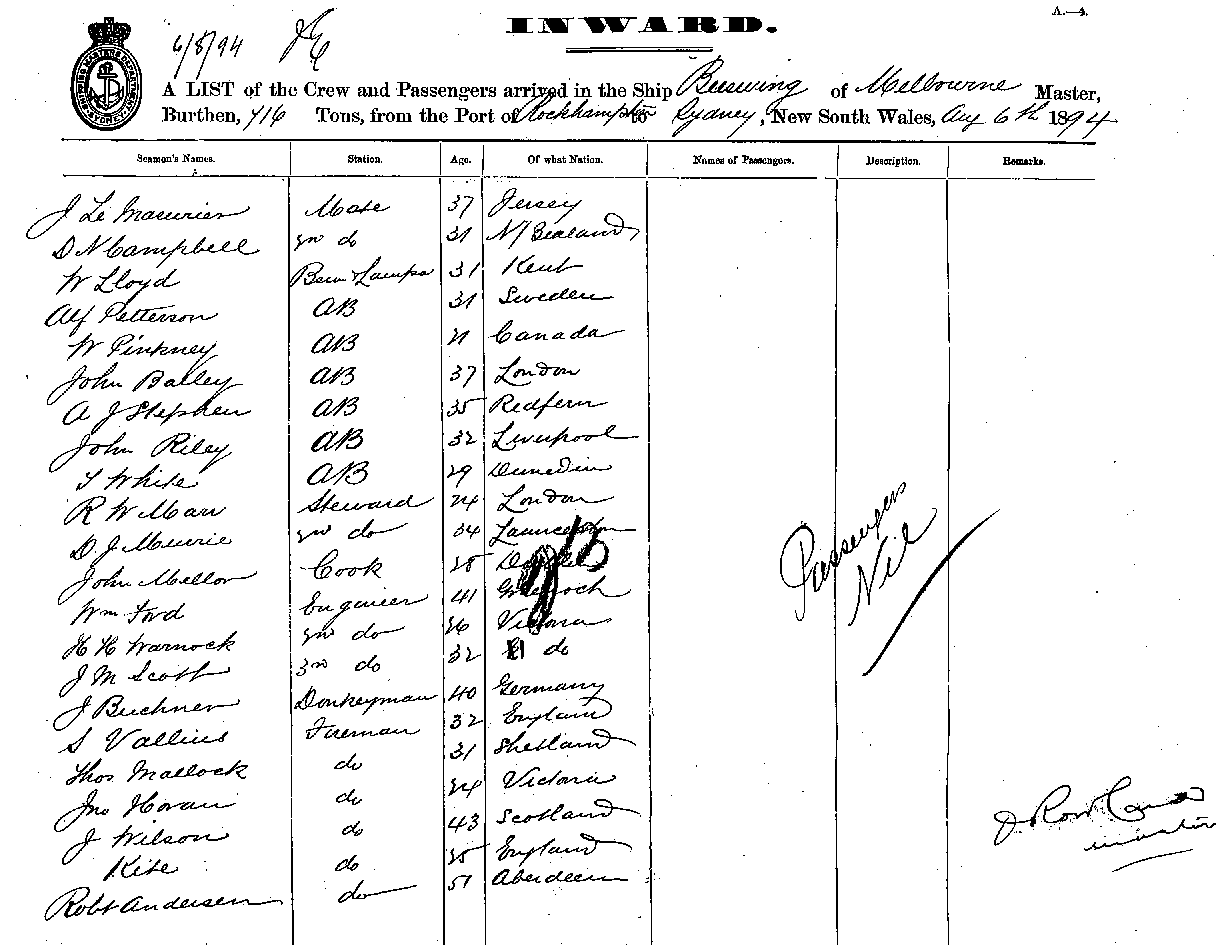 INWARD.
A.—4.
6/8/94
SHIPPING MASTERS DEPARTMENT SYDNEY
A LIST of the Crew and Passengers arrived in the Ship Beeswing of Melbourne Master,
Burthen, 416 Tons, from the Port of Rockhampton to Sydney, New South Wales, Aug 6th 1894
Seamen's Names. Station. Age. Of what Nation. Names of Passengers. Description. Remarks.
J Le Maurier Mate 37 Jersey
D N Campbell 2nd do 31 N/Zealand
W Lloyd Bsun & Lamps 31 Kent
Alf Petterson AB 31 Sweden
W Pinkney AB 21 Canada
John Balley AB 37 London
A J Stephen AB 35 Redfern
John Riley AB 32 Liverpool
T White AB 29 Dunedin
R W Marr Steward 24 London
D. J. Meurie 2nd do 34 Launceston
John Mellor Cook 28
Wm Ford Engineer 41 Greenock
H H Warnock 2nd do 26 Victoria
J M Scott 3rd do 32 do
J Buchner Donkeyman 40 Germany
S Vallius Fireman 32 England
Thos Mallock do 31 Shetland
Jno Horan do 24 Victoria
J Wilson do 43 Scotland
Kite do 35 England
Robt Andersen do 51 Aberdeen
Passengers
Nil